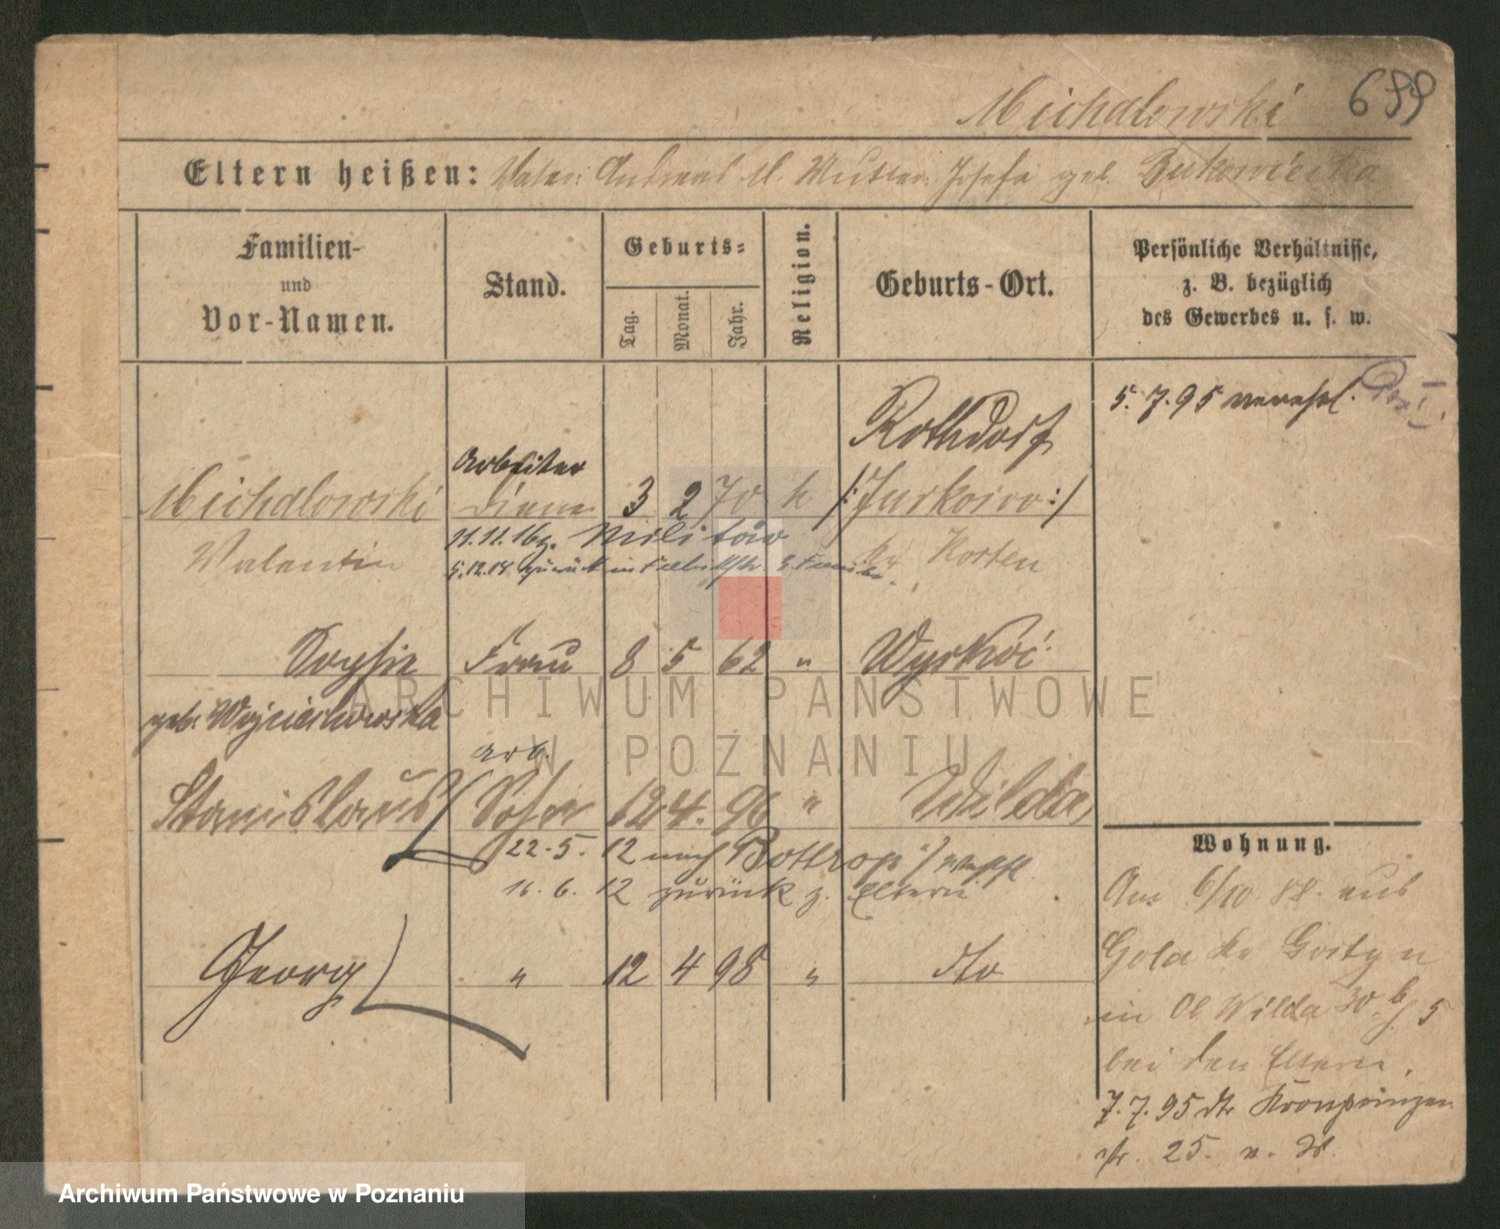 Michalowski 699
Eltern heißen: Vater: Andreas M. Mutter: Josefa geb. Bukowiecka
Familien-
und
Vor-Namen.
Stand.
Geburts-
Tag.
Monat.
Jahr.
Religion.
Geburts-Ort.
Persönliche Verhältnisse,
z. B. bezüglich
des Gewerbes u. s. w.
5. 7. 95 verehel.
Rothdorf
Arbeiter
Michalowski 3 2 70 k /:Jurkowo:/
Valentin 11.11.16 z. Militär Kr Kosten
5.12.18 zurück
Sophie Frau 8 5 62 " Wyskoć
geb. Wojciechowska
arb.
Stanislaus Sohn 12 4. 96 " Wilda
22. 5. 12 nach Bottrop
11. 6. 12 zurück z. Eltern
Georg " 12 4 98 " dto
Wohnung.
Am 6/10 88. aus
Gola Kr Gostyn
in Ob Wilda 30. 5
bei den Eltern.
7. 7. 95 dto Kronprinzen
str. 25.
ARCHIWUM PAŃSTWOWE
W POZNANIU
Archiwum Państwowe w Poznaniu